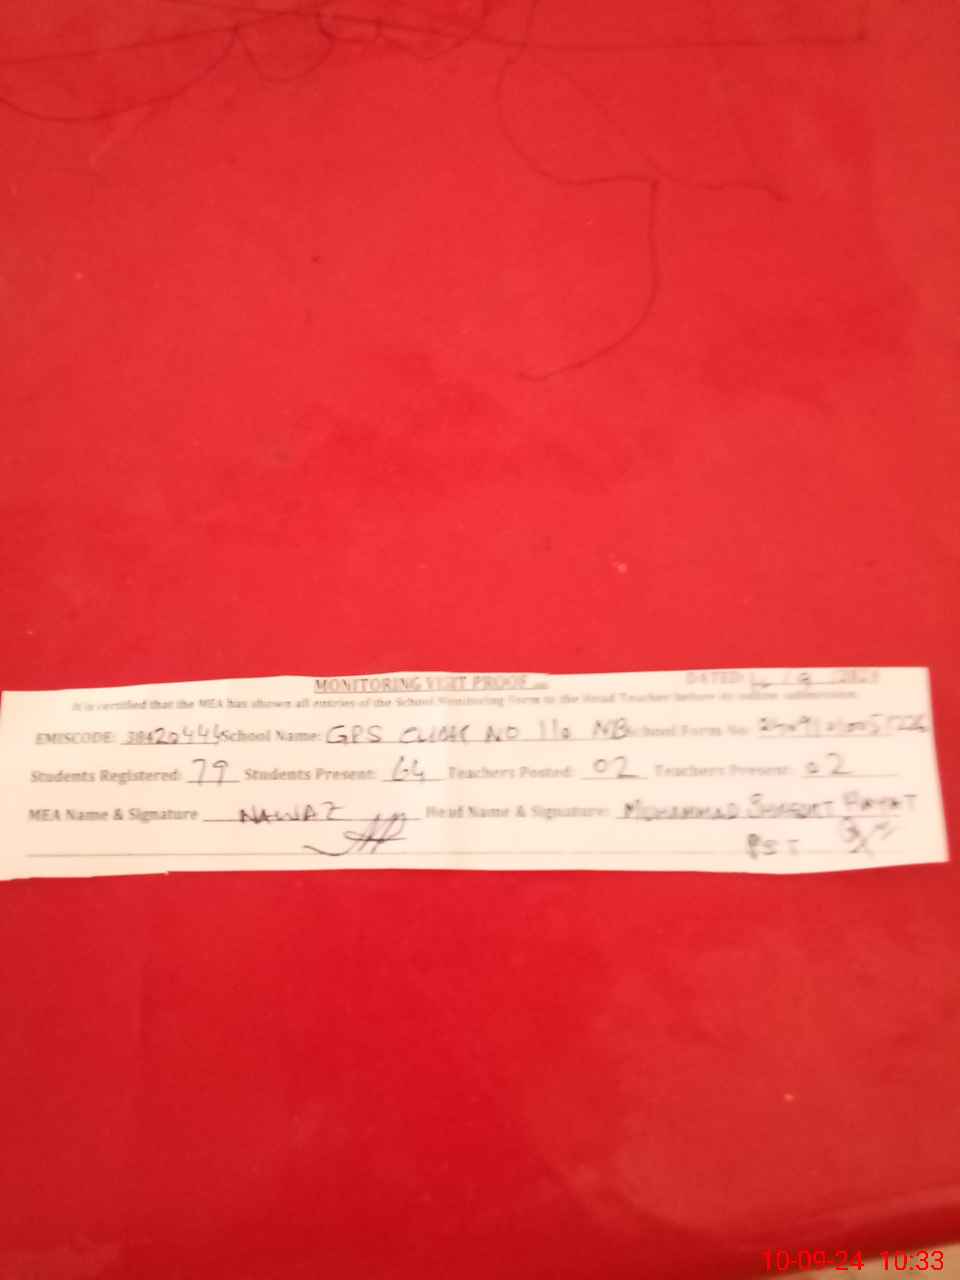 MONITORING VISIT PROOF
DATED:
It is certified that the MEA has shown all entries of the School Monitoring Form to the Head Teacher before its online submission.
EMISCODE: 38420444 School Name: GPS CHAK NO 110 NB School Form No:
Students Registered: 79 Students Present: 64 Teachers Posted: 02 Teachers Present: 02
MEA Name & Signature NAWAZ Head Name & Signature: MUHAMMAD HAYAT
PST
10-09-24 10:33